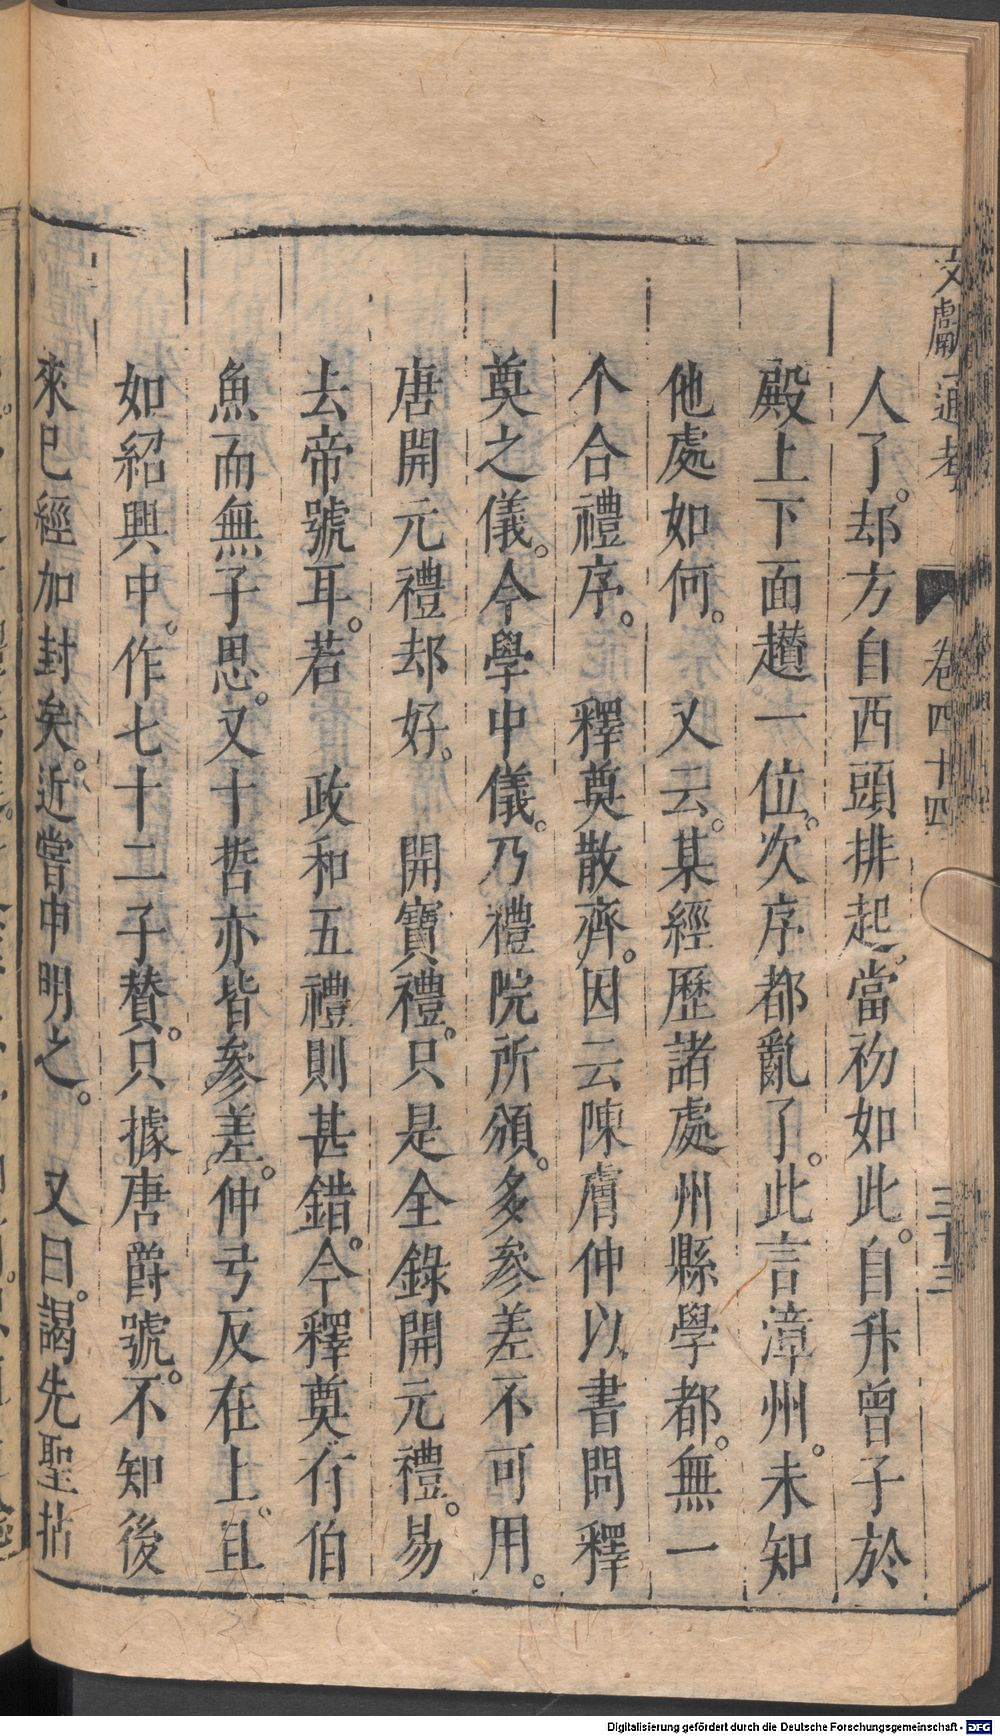 文獻通考 卷四十四 三十三
人了。却方自西頭排起。當初如此。自升曾子於
殿上下面趲一位。次序都亂了。此言漳州。未知
他處如何。又云。某經歷諸處州縣學都。無一
个合禮序。 釋奠散齊。因云陳膚仲以書問釋
奠之儀。今學中儀。乃禮院所頒。多參差不可用。
唐開元禮却好。 開寶禮。只是全錄開元禮。易
去帝號耳。若 政和五禮則甚錯。今釋奠有伯
魚而無子思。又十哲亦皆參差。仲弓反在上。且
如紹興中。作七十二子賛。只據唐爵號。不知後
來已經加封矣。近嘗申明之。 又曰。謁先聖拈
Digitalisierung gefördert durch die Deutsche Forschungsgemeinschaft - DFG